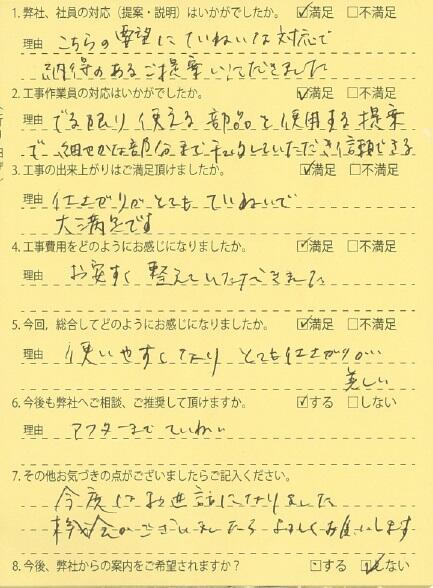 1. 弊社、社員の対応（提案・説明）はいかがでしたか。 ☑満足 □不満足
理由 こちらの要望にていねいな対応で
納得のあるご提案いただきました
2. 工事作業員の対応はいかがでしたか。 ☑満足 □不満足
理由 でる限り使える部品を使用する提案
で細やかな部分まで していただき信頼できる
3. 工事の出来上がりはご満足頂けましたか。 ☑満足 □不満足
理由 仕上がりがとてもていねいで
大満足です
4. 工事費用をどのようにお感じになりましたか。 ☑満足 □不満足
理由 お安すく整えていただきました
5. 今回，総合してどのようにお感じになりましたか。 ☑満足 □不満足
理由 使いやすくなり とても仕上がりが
美しい
6. 今後も弊社へご相談、ご推奨して頂けますか。 ☑する □しない
理由 アフターまでていねい
7. その他お気づきの点がございましたらご記入ください。
今度はお世話になりました
機会がございましたらよろしくお願いします
8. 今後、弊社からの案内をご希望されますか？ □する ☑しない